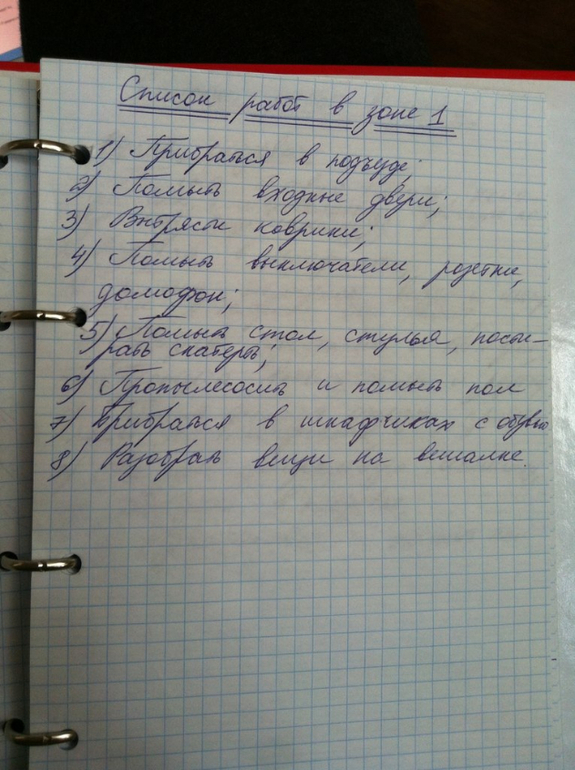 Список работ в зоне 1
1) Прибраться в подъезде;
2) Помыть входные двери;
3) Вытрясти коврики;
4) Помыть выключатели, розетки,
домофон;
5) Помыть стол, стулья, пости-
рать скатерть;
6) Пропылесосить и помыть пол
7) Прибраться в шкафчиках с обувью
8) Разобрать вещи на вешалке.